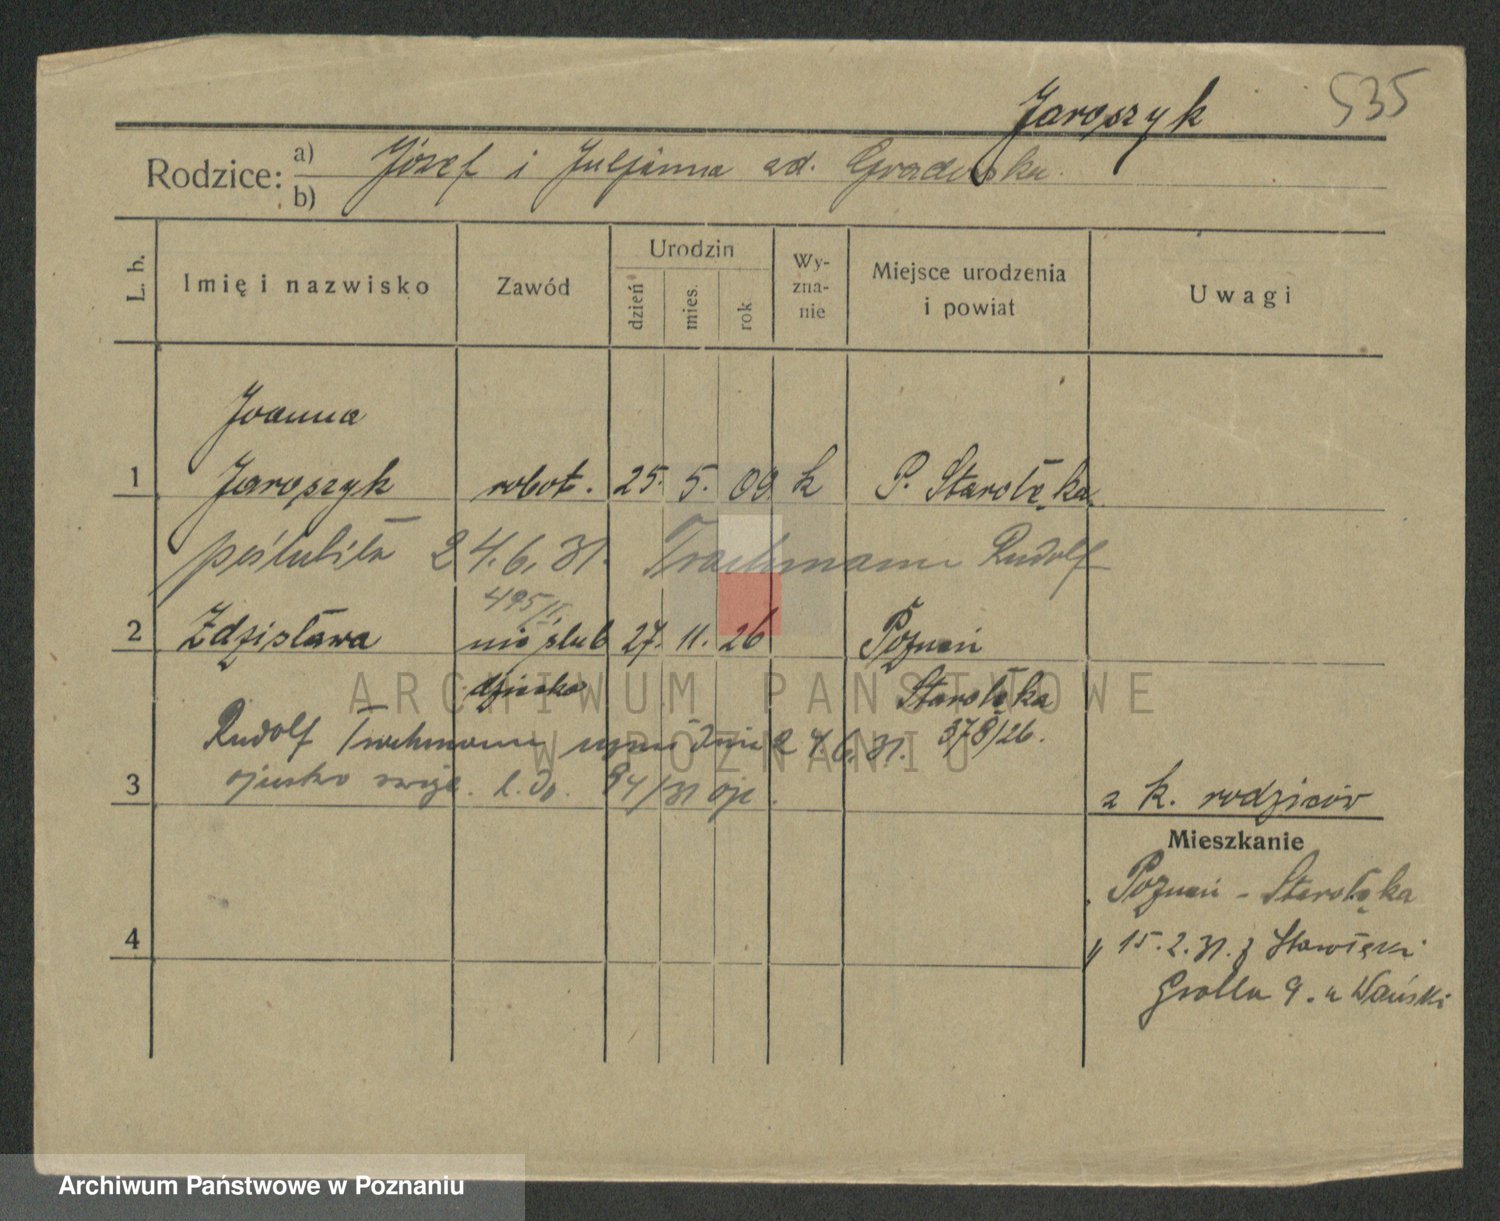 535
Jaroszyk
Rodzice: a) Józef i Juljanna zd. Gradowska
b)
L. b.
Imię i nazwisko
Zawód
Urodzin
dzień
mies.
rok
Wy-
zna-
nie
Miejsce urodzenia
i powiat
Uwagi
Joanna
1 Jaroszyk robot. 25. 5. 09 k P. Starołęka
poślubiła 24.6.31. Trachmann Rudolf
495/II
2 Zdzisława nieślub 27. 11. 26 Poznań
dziecko Starołęka
Rudolf Trachmann uznał dnia 24.6.31. 378/26.
3 ojcostwo swoje. 94/31
z k. rodziców
Mieszkanie
Poznań - Starołęka
4 " 15.2.31. z Starołęki
Grolla 9. u Wański
ARCHIWUM PAŃSTWOWE
W POZNANIU
Archiwum Państwowe w Poznaniu